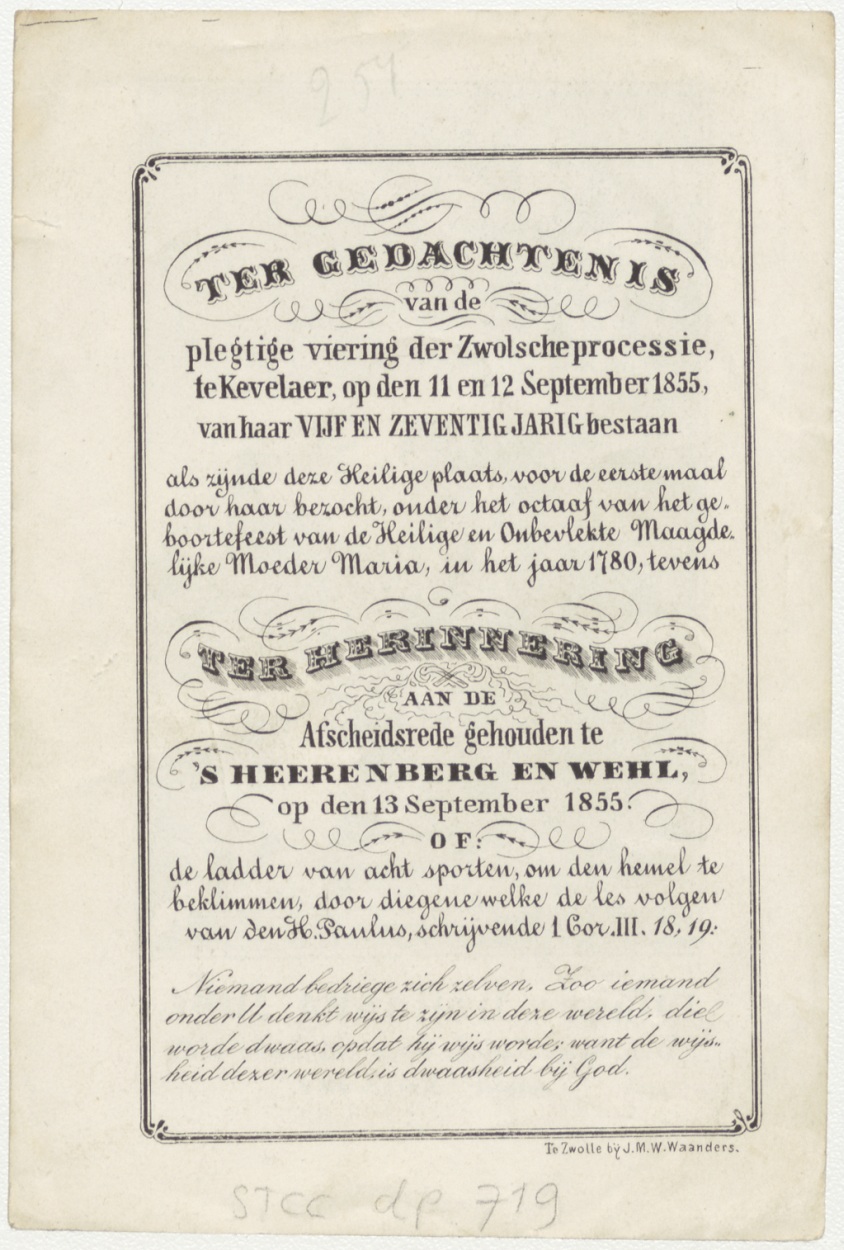 257
TER GEDACHTENIS
van de
plegtige viering der Zwolsche processie,
te Kevelaer, op den 11 en 12 September 1855,
van haar VIJF EN ZEVENTIG JARIG bestaan
als zijnde deze Heilige plaats, voor de eerste maal
door haar bezocht, onder het octaaf van het ge-
boortefeest van de Heilige en Onbevlekte Maagde-
lijke Moeder Maria, in het jaar 1780, tevens
TER HERINNERING
AAN DE
Afscheidsrede gehouden te
'S HEERENBERG EN WEHL,
op den 13 September 1855.
OF:
de ladder van acht sporten, om den hemel te
beklimmen, door diegene welke de les volgen
van den H. Paulus, schrijvende 1 Cor. III. 18, 19:
Niemand bedriege zich zelven. Zoo iemand
onder U denkt wijs te zijn in deze wereld, die
worde dwaas, opdat hij wijs worde; want de wijs-
heid dezer wereld, is dwaasheid bij God.
Te Zwolle bij J.M.W. Waanders.
STCC dp 719